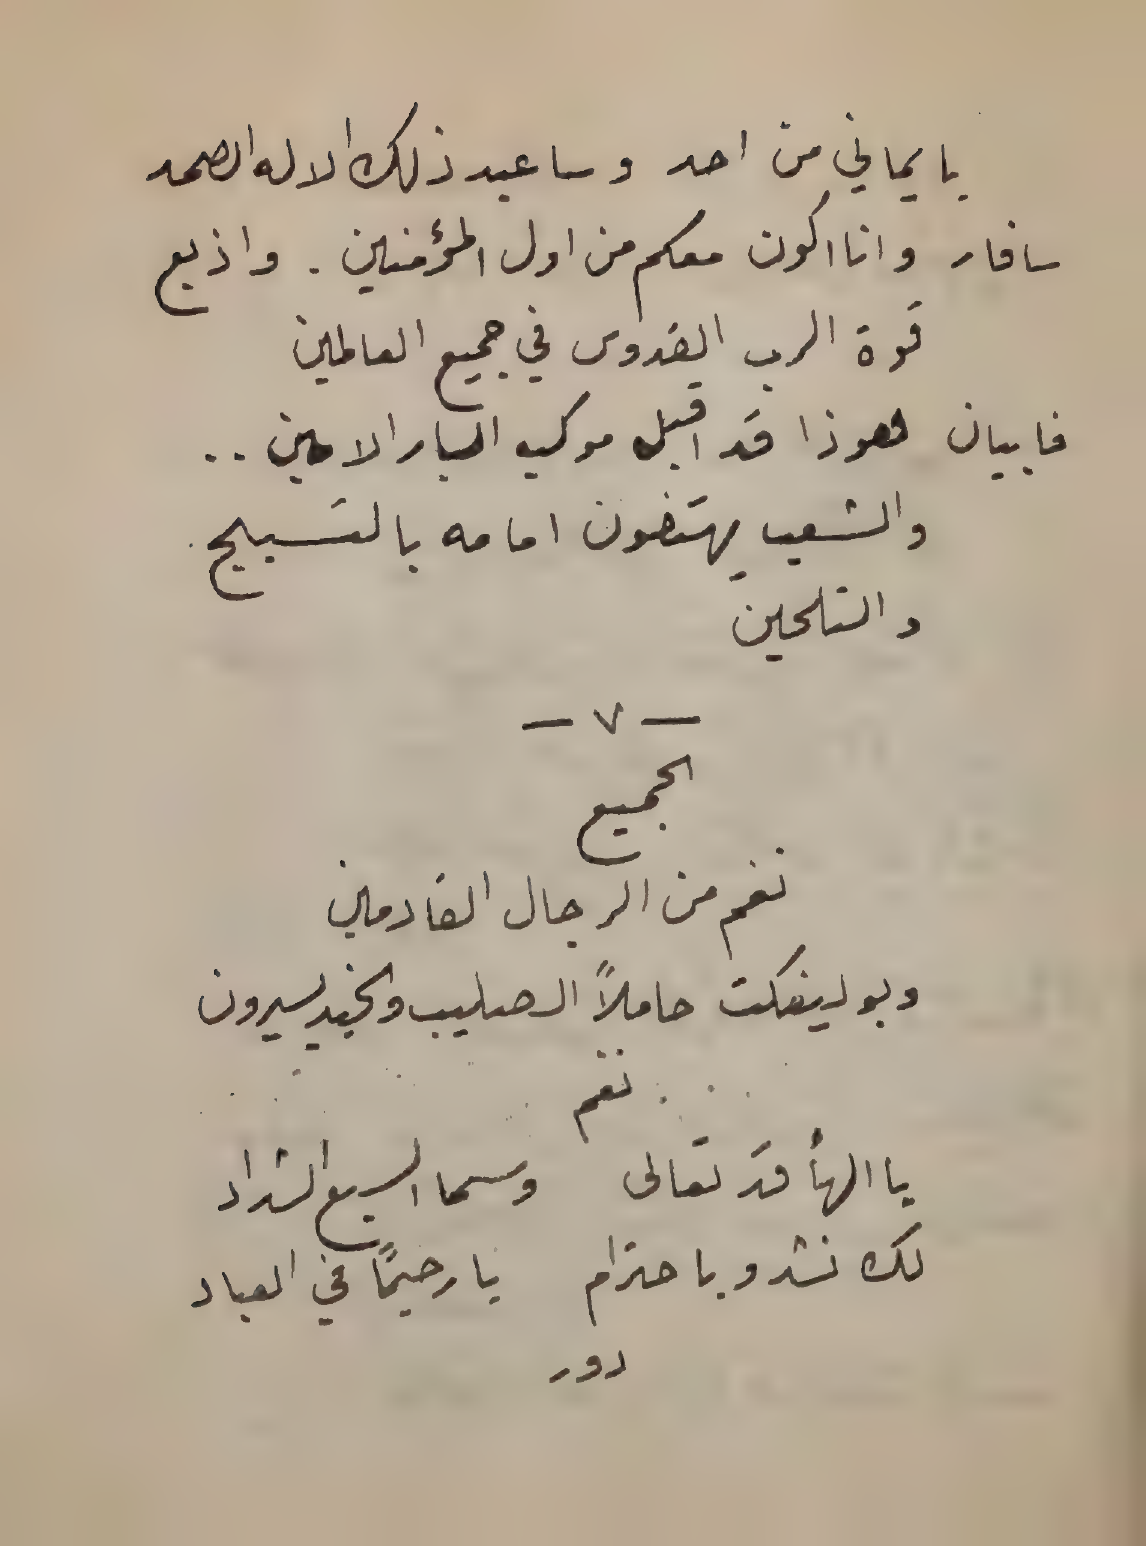 بايماني من احد وساعبد ذلك الاله الصمد
سافار وانا اكون معكم من اول المؤمنين . واذيع
قوة الرب القدوس في جميع العالمين
فابيان فهوذا قد اقبل موكب البار الامين ..
والشعب يهتفون امامه بالتسبيح
والتلحين
— ٧ —
الجميع
نغم من الرجال القادمين
وبولينكت حاملاً الصليب والجند يسيرون
نغم
يا الهاً قد تعالى وسما السبع الشداد
لك نشدو باحترام يا رحيمًا في العباد
دور